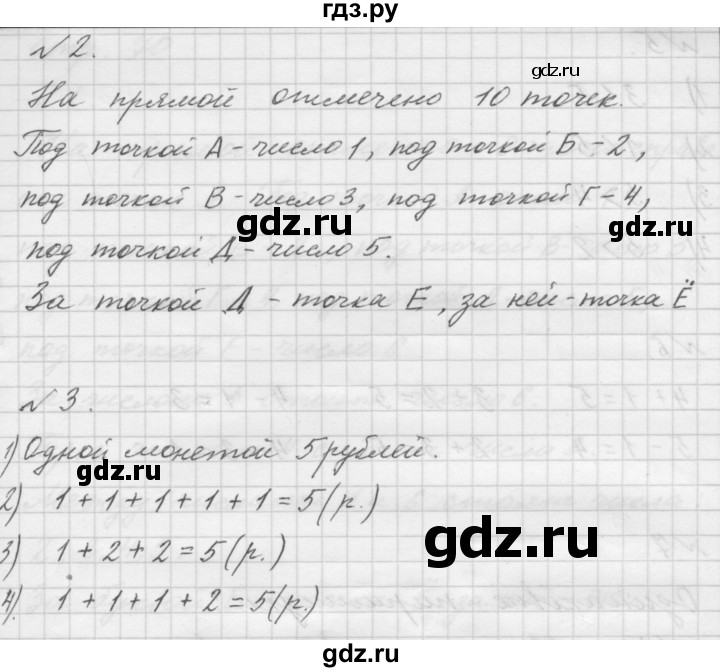 гдз.ру
№2.
gdz.ru
На прямой отмечено 10 точек.
Под точкой А - число 1, под точкой Б - 2,
под точкой В - число 3, под точкой Г - 4,
gdz.ru
gdz.ru
под точкой Д - число 5.
За точкой Д - точка Е, за ней - точка Ё
№3.
1) Одной монетой 5 рублей.
gdz.ru
2) 1 + 1 + 1 + 1 + 1 = 5 (р.)
gdz.ru
3) 1 + 2 + 2 = 5 (р.)
gdz.ru
4). 1 + 1 + 1 + 2 = 5 (р.)
gdz.ru